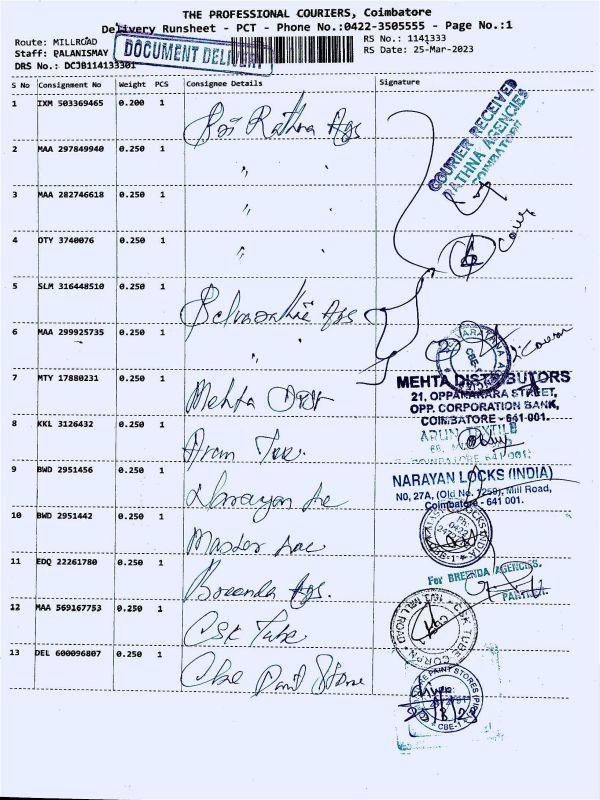 THE PROFESSIONAL COURIERS, Coimbatore
Delivery Runsheet - PCT - Phone No.:0422-3505555 - Page No.:1
Route: MILLROAD
RS No.: 1141333
Staff: PALANISMAY
RS Date: 25-Mar-2023
DRS No.: DCJB114133301
DOCUMENT DELIVERY
S No Consignment No Weight PCS Consignee Details Signature
1 IXM 503369465 0.200 1 Sri Rathna Ags
COURIER RECEIVED
RATHNA AGENCIES
COIMBATORE
2 MAA 297849940 0.250 1 "
3 MAA 282746618 0.250 1 "
4 OTY 3740076 0.250 1 "
5 SLM 316448510 0.250 1 Selvarathie Ags
6 MAA 299925735 0.250 1 "
7 MTY 17880231 0.250 1 Mehta Dist
MEHTA DISTRIBUTORS
21, OPPANAKARA STREET,
OPP. CORPORATION BANK,
COIMBATORE - 641-001.
8 KKL 3126432 0.250 1 Arun Tex.
ARUN TEXTILE
COIMBATORE 641 001
9 BWD 2951456 0.250 1 Narayan
NARAYAN LOCKS (INDIA)
NO, 27A, (Old No. 1259), Mill Road,
Coimbatore - 641 001.
10 BWD 2951442 0.250 1 Master
11 EDQ 22261780 0.250 1 Breenda Ags.
For BREENDA AGENCIES.
PARTNER.
12 MAA 569167753 0.250 1 CSK Tube
CSK TUBE CORPN
MILL ROAD
13 DEL 600096807 0.250 1 Cbe Paint Store
PAINT STORES
CBE-1